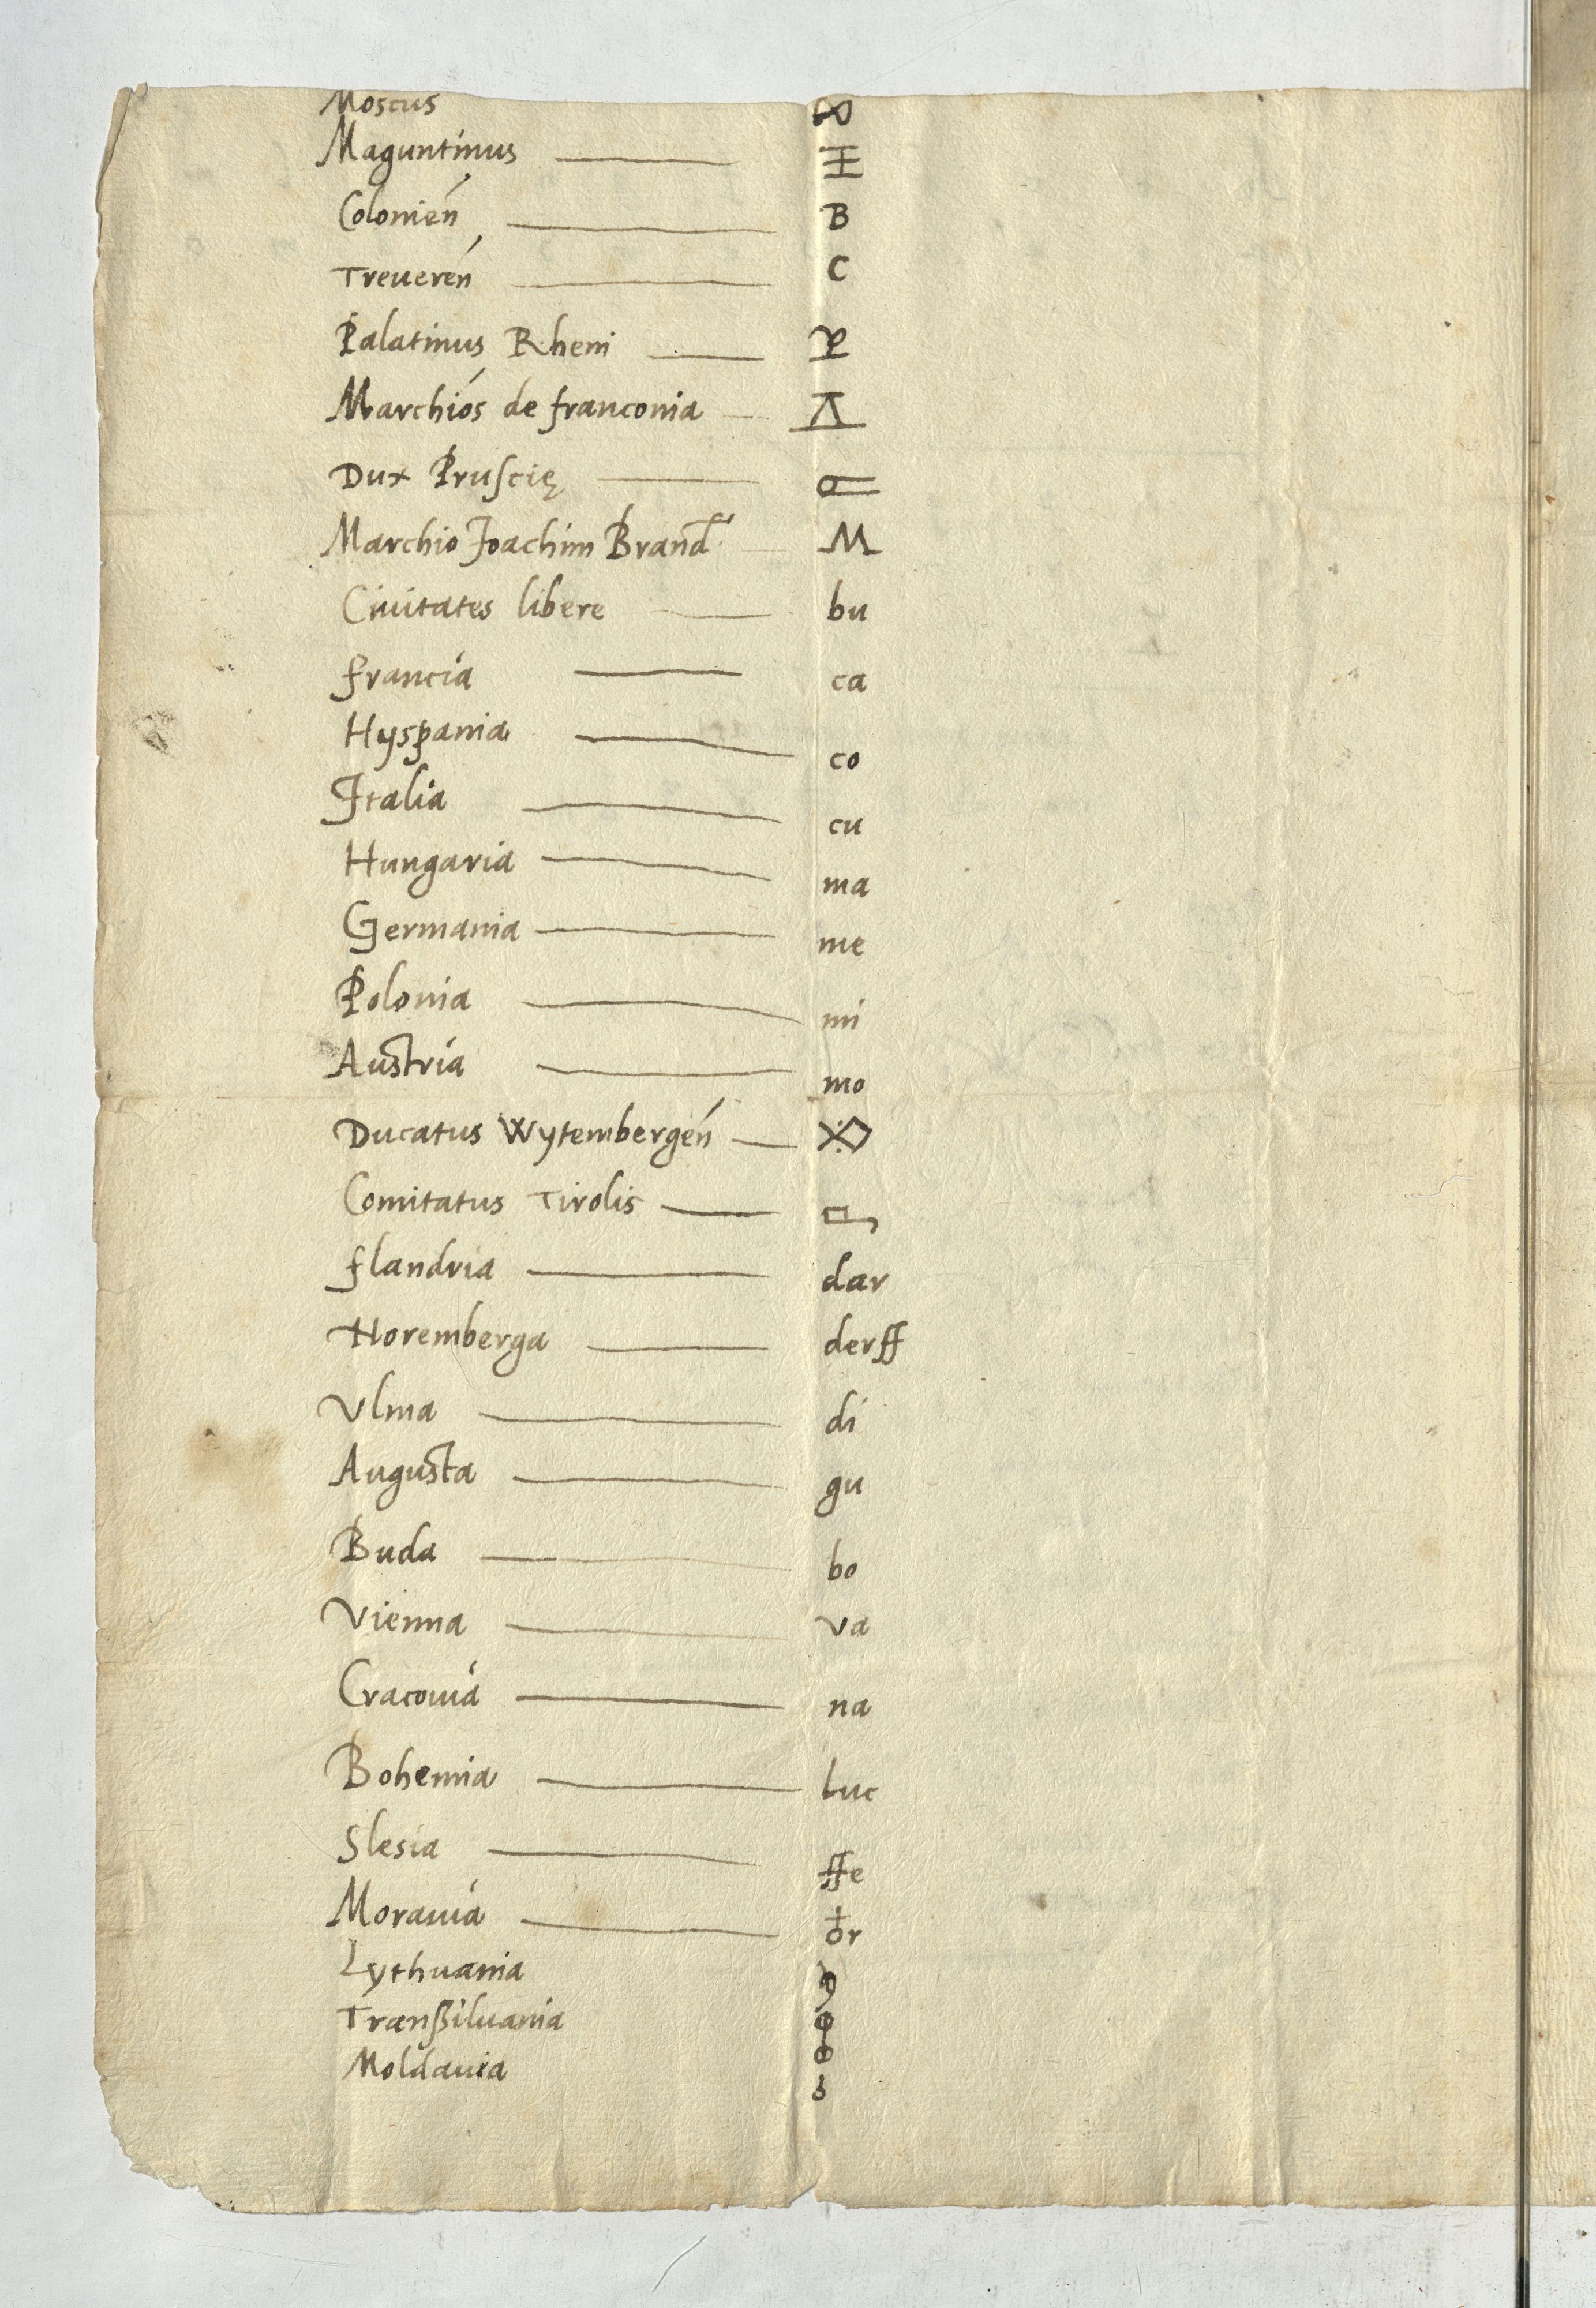 Moscus
Maguntinus
Colonień B
Treuereń C
Palatinus Rheni
Marchiós de franconia
Dux Pruscię
Marchio Joachim Brand M
Ciuitates libere bu
francia ca
Hyspania co
Italia cu
Hungaria ma
Germania me
Polonia mi
Austria mo
Ducatus Wytembergeń
Comitatus Tirolis
flandria dar
Noremberga derff
Vlma di
Augusta gu
Buda bo
Vienna va
Cracouia na
Bohemia luc
Slesia ffe
Morauia
Lythuania
Tranßiluania
Moldauia